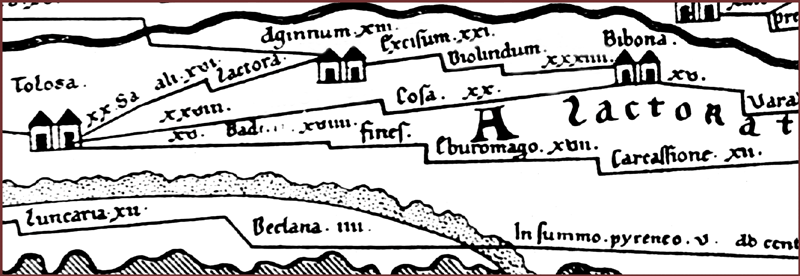 Aginnum. xiii. Excisum. xxi.
Diolindum. xxxiiii. Bibona. xv.
Tolosa. xx. Sa ali. xvi. Lactora.
xxviii. Cosa. xx.
Vara
A Lactorat
xv. Bad xviiii. fines.
Eburomago. xvii. Carcassione. xii.
Luncaria. xii. Beclana. iiii. In summo. pyreneo. v. ab cent